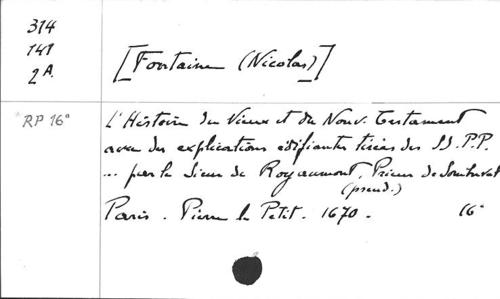 314
141
2A.
[Fontaine (Nicolas)]
*RP 16°
L'Histoire du Vieux et du Nouv. Testament
avec des explications édifiantes tirées des SS.P.P.
... par le Sieur de Royaumont, Prieur de Sombreval
(pseud.)
Paris. Pierre le Petit. 1670. 16°